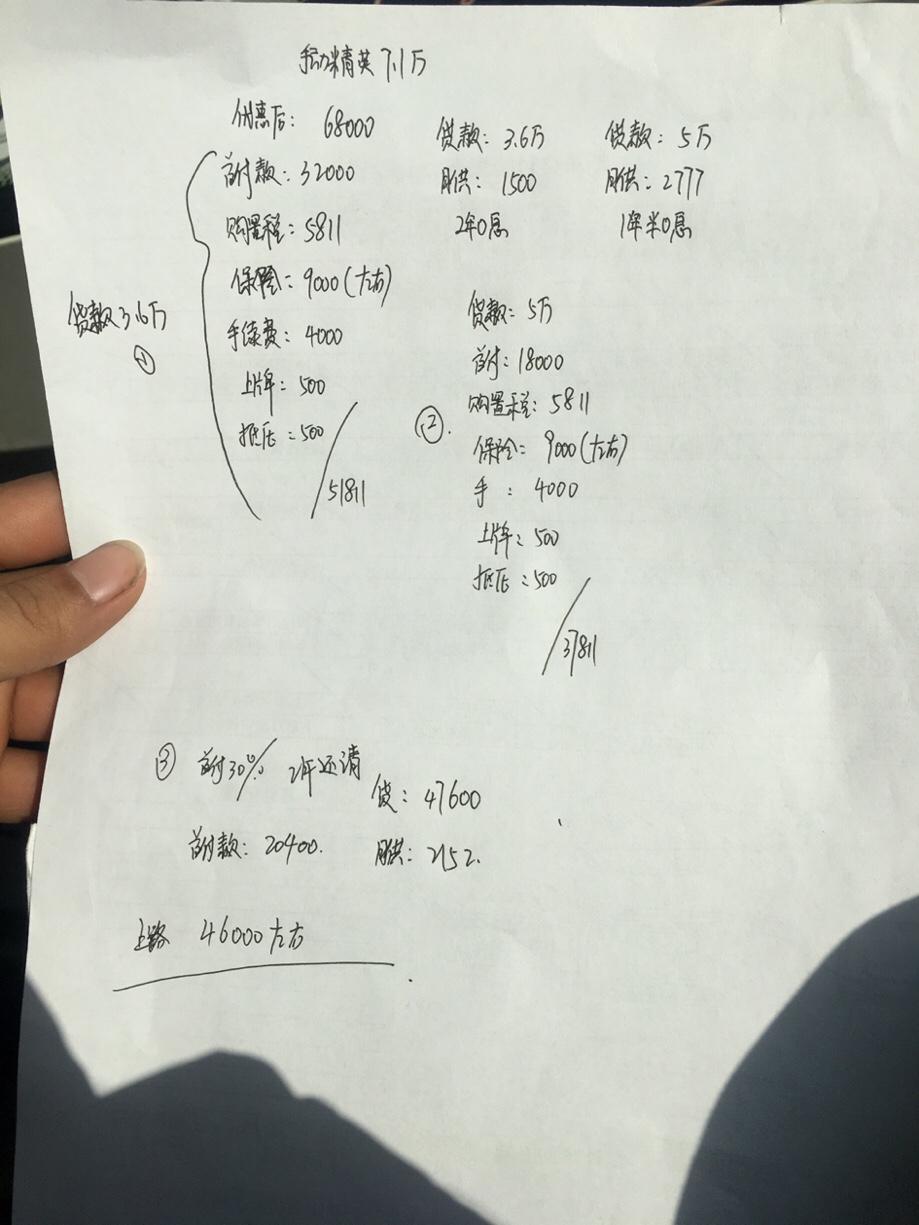 手动精英 7.1万
优惠后: 68000
首付款: 32000
购置税: 5811
保险: 9000(左右)
手续费: 4000
上牌: 500
抵压: 500
51811
贷款3.6万
①
贷款: 3.6万
月供: 1500
2年0息
贷款: 5万
月供: 2777
1年半0息
②.
贷款: 5万
首付: 18000
购置税: 5811
保险: 9000(左右)
手: 4000
上牌: 500
抵压: 500
37811
③ 首付30% 2年还清
贷: 47600
首付款: 20400.
月供: 2152.
上路 46000左右